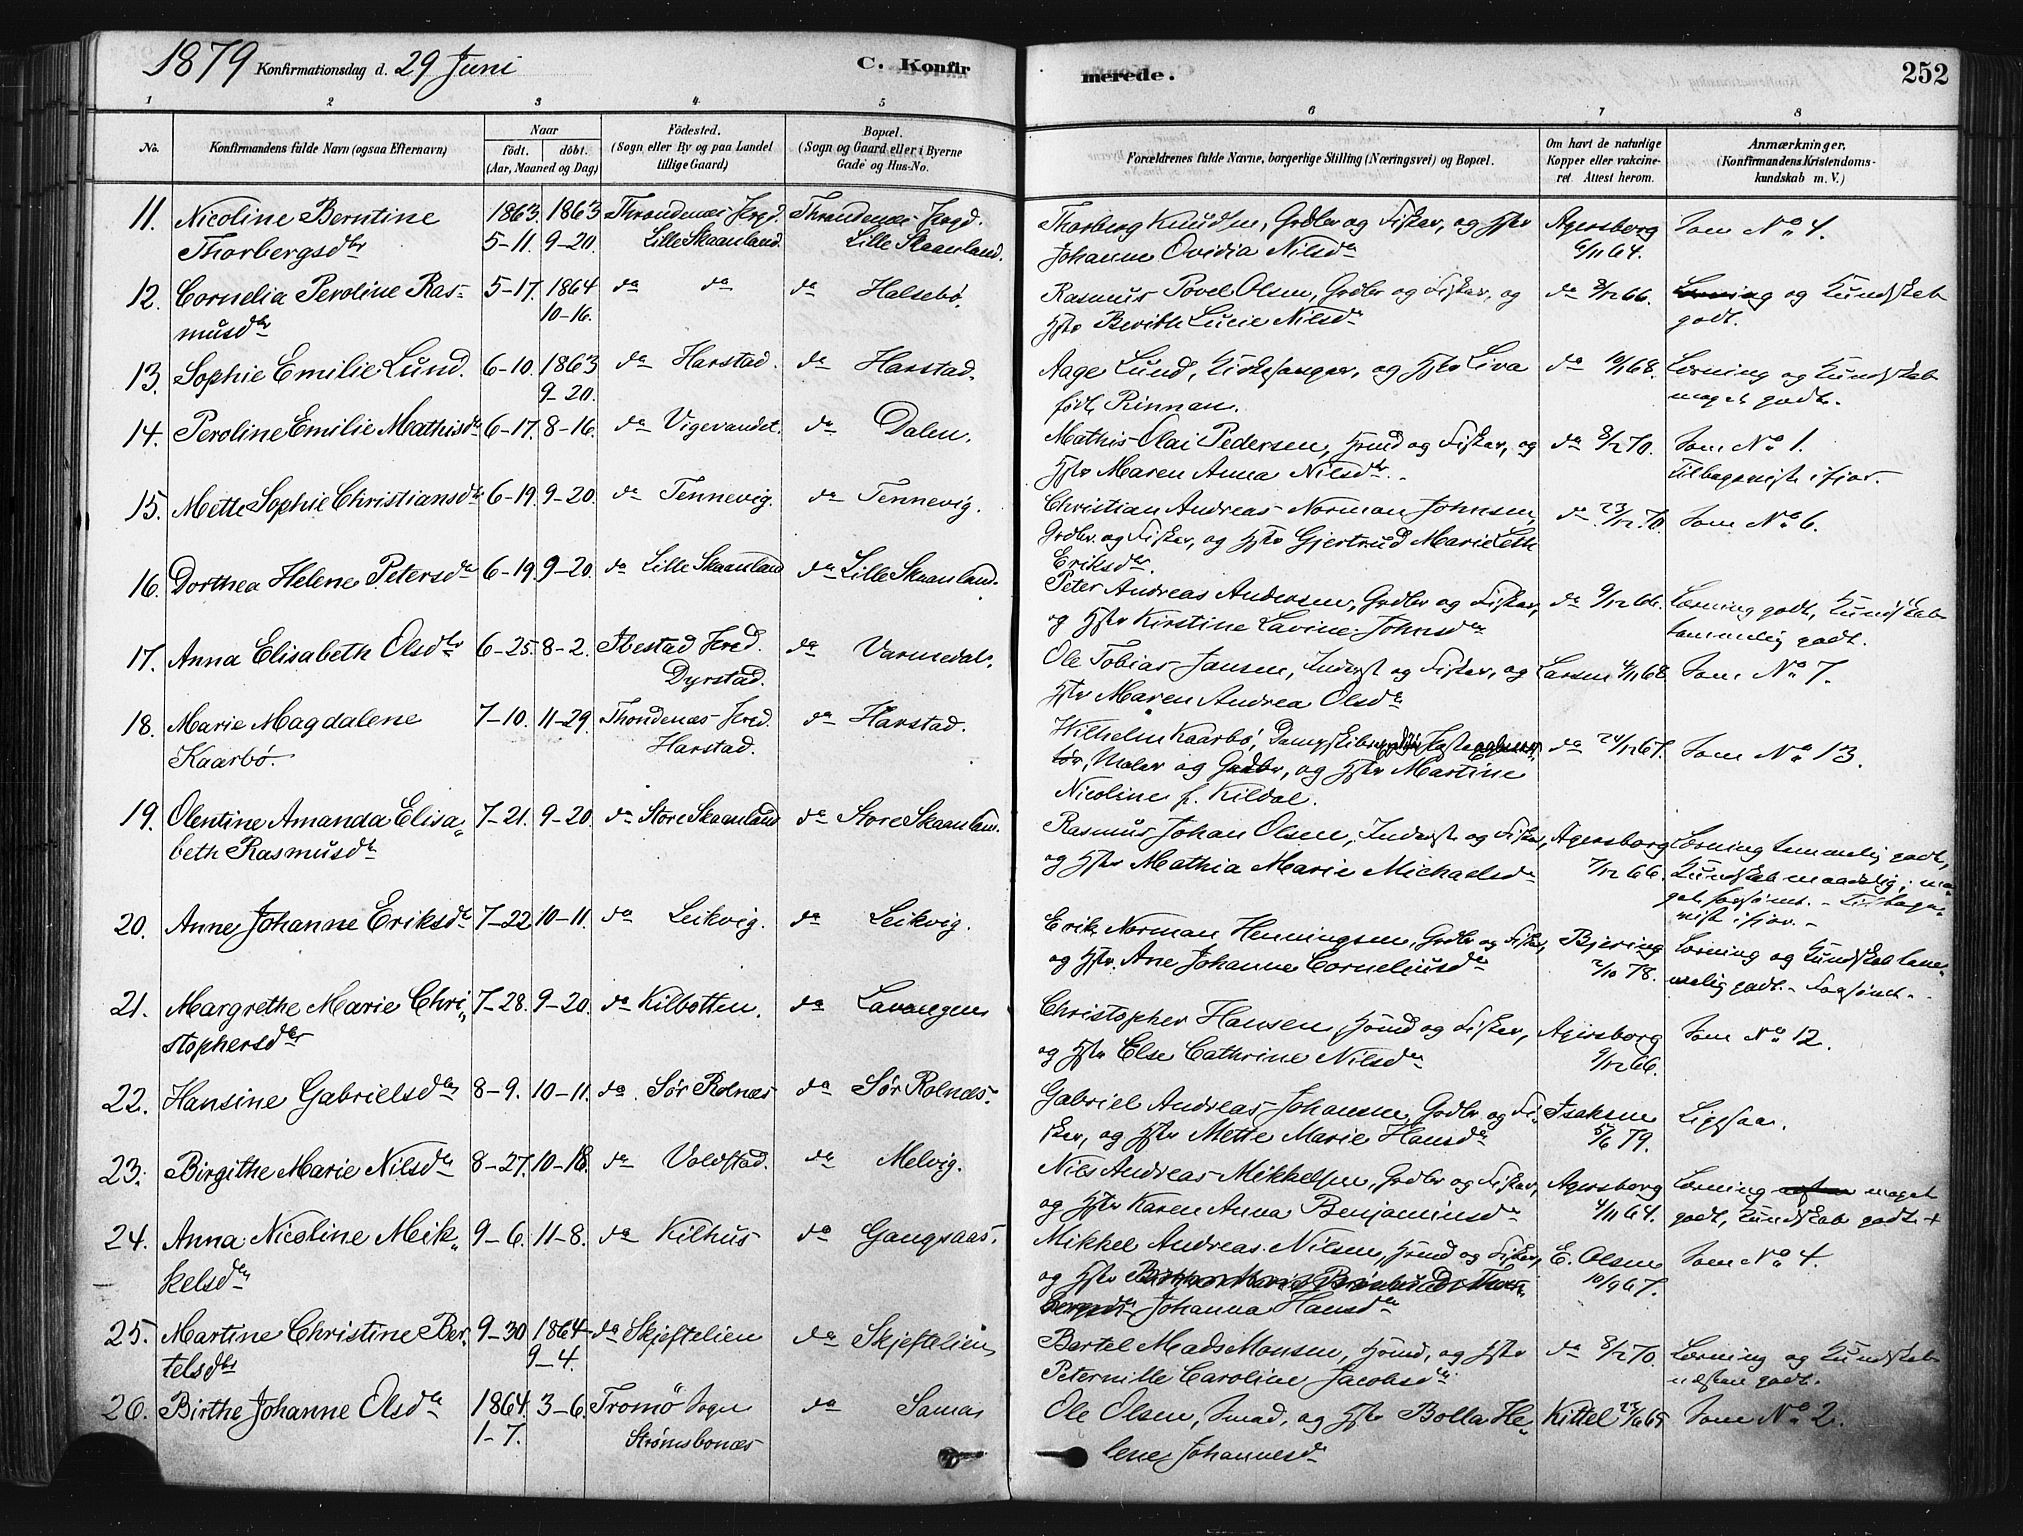 1879 Konfirmationsdag d. 29 Juni C. Konfir
merede. 252
1 2 3 4 5 6 7 8
No. Konfirmandens fulde Navn (ogsaa Efternavn) Naar födt. döbt. (Aar, Maaned og Dag) Födested. (Sogn eller By og paa Landet tillige Gaard) Bopæl. (Sogn og Gaard eller i Byerne Gade og Hus-No. Forældrenes fulde Navne, borgerlige Stilling (Næringsvei) og Bopæl. Om havt de naturlige Kopper eller vakcineret Attest herom. Anmærkninger. (Konfirmandens Kristendomskundskab m. V.)
11. Nicoline Berntine 1863. 1863 Throndenæs Pregd. Throndenæs Pregd. Thorberg Knudsen, Grdbr og Fisker, og Hstr Agersborg Som No 4.
Thorbergsdtr 5-11. 9-20. Lille Skaanland. Lille Skaanland. Johanne Ovidia Nilsdr 6/11 64.
12. Cornelia Peroline Ras- 5-17. 1864 do do do Halsebö. Rasmus Povel Olsen, Grdbr og Fisker, og do 3/12 66. Læsning og Kundskab
musdtr 10-16. Hstr Berith Lucie Nilsdr godt.
13. Sophie Emilie Lund. 6-10. 1863 do Harstad. do Harstad. Aage Lund, Kirkesanger, og Hstr Liva do 10/1 68. Læsning og Kundskab
9-20. født Rinnan. meget godt.
14. Peroline Emilie Mathisdr 6-17. 8-16. do Vigevandet. do Dalen. Mathis Olai Pedersen, Hmd og Fisker, og do 8/12 70. Som No 1.
Hstr Maren Anna Nilsdtr. Tilbagevist ifjor.
15. Mette Sophie Christiansdtr 6-19. 9-20. do Tennevig. do Tennevig. Christian Andreas Norman Johnsen, do 23/12 70. Som No 6.
Grdbr og Fisker, og Hstr Gjertrud Marie Leth
Eriksdtr.
16. Dorthea Helene Petersdr 6-19. 9-20. do Lille Skaanland do Lille Skaanland. Peter Andreas Andersen, Grdbr og Fisker, do 9/12 66. Læsning godt, Kundskab
og Hstr Kirstine Lavine Johnsdr temmelig godt.
17. Anna Elisabeth Olsdtr 6-25. 8-2. Ibestad Pred. do Varmedal. Ole Tobias Jansen, Inderst og Fisker, og Larsen 4/11 68. Som No 7.
Dyrstad. Hstr Maren Andrea Olsdr
18. Marie Magdalene 7-10. 11-29. Thondenæs Pred. do Harstad. Wilhelm Kaarbö, do 24/12 67. Som No 13.
Kaarbö. Harstad. Maler og Grdbr, og Hstr Martine
Nicoline f. Kildal.
19. Olentine Amanda Elisa- 7-21. 9-20. do Store Skaanland do Store Skaanland. Rasmus Johan Olsen, Inderst og Fisker, Agersborg Læsning temmelig godt,
beth Rasmusdtr og Hstr Mathia Marie Michaelsdr 7/12 66. Kundskab maadelig;
ifjor.
20. Anne Johanne Eriksdr 7-22 10-11. do Leikvig. do Leikvig. Erik Norman Henningsen, Grdbr og Fisker, Bjering Læsning og Kundskab tem-
og Hstr. Ane Johanne Corneliusdr 2/10 78. melig godt.
21. Margrethe Marie Chri- 7-28. 9-20. do Kilbotten. do Lavangen Christopher Hansen, Hmd og Fisker, Agersborg Som No 12.
stophersdtr og Hstr Else Cathrine Nilsdr 9/12 66.
22. Hansine Gabrielsdtr 8-9. 10-11. do Sör Rolnæs do Sör Rolnæs. Gabriel Andreas Johansen, Grdbr og Fi- Isaksen Ligesaa.
sker, og Hstr Mette Marie Hansdr 5/6 79.
23. Birgithe Marie Nilsdr 8-27. 10-18. do Voldstad. do Melvig. Nils Andreas Mikkelsen, Grdbr og Fisker, Agersborg Læsning meget
og Hstr Karen Anna Benjaminsdr 4/11 64. godt, Kundskab godt +
24. Anna Nicoline Mik- 9-6. 11-8. do Kilhus do Gangsaas. Mikkel Andreas Nilsen, Hmd og Fisker, E. Olsen Som No 4.
kelsdtr og Hstr 10/9 67.
Johanna Hansdr
25. Martine Christine Ber- 9-30 1864 do Skjeftelien do Skjeftelien Bertel Mads Monsen, Hmd, og Hstr do 8/12 70. Læsning og Kundskab
telsdtr 9-4. Peternille Caroline Jacobsdtr næsten godt.
26. Birthe Johanne Olsdr 1864. 3-6. Tromö Sogn do Sama Ole Olsen, Smed, og Hstr Bolla He- Kittel Som No 2.
1-7. Strömsbonæs lene Johannesdr